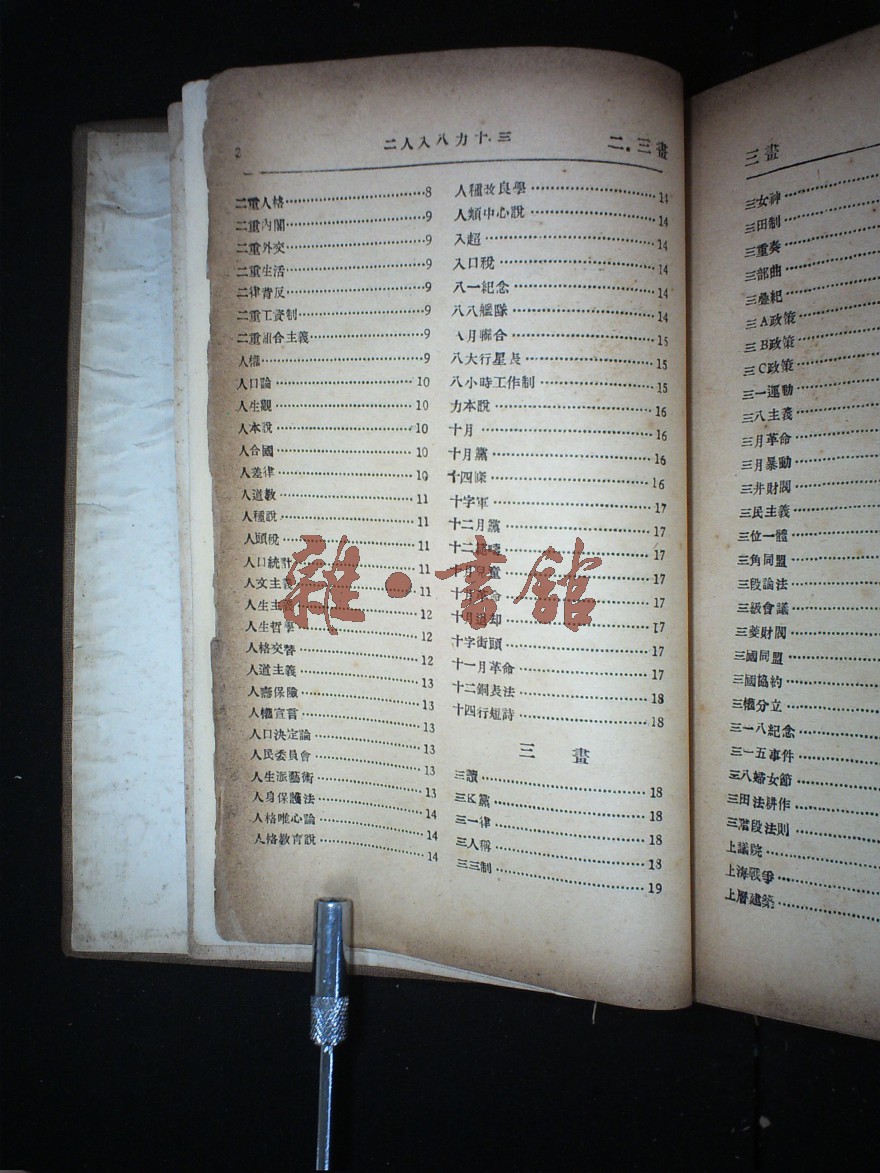 2
二人入八力十.三
二.三畫
二重人格 8
二重內閣 9
二重外交 9
二重生活 9
二律背反 9
二重工資制 9
二重組合主義 9
人權 9
人口論 10
人生觀 10
人本說 10
人合國 10
人差律 10
人道敎 11
人種說 11
人頭稅 11
人口統計 11
人文主義 11
人生主義 12
人生哲學 12
人格交替 12
人道主義 13
人壽保險 13
人權宣言 13
人口決定論 13
人民委員會 13
人生派藝術 13
人身保護法 14
人格唯心論 14
人格敎育說 14
人種改良學 14
人類中心說 14
入超 14
入口稅 14
八一紀念 14
八八艦隊 14
八月聯合 15
八大行星 15
八小時工作制 15
力本說 16
十月 16
十月黨 16
十四條 16
十字軍 17
十二月黨 17
十二 17
十月兒童 17
十月革命 17
十月退却 17
十字街頭 17
十一月革命 17
十二銅表法 18
十四行短詩 18
三畫
三讀 18
三K黨 18
三一律 18
三人稱 18
三三制 19
雜·書館
三畫
三女神
三田制
三重奏
三部曲
三疊紀
三A政策
三B政策
三C政策
三一運動
三八主義
三月革命
三月暴動
三井財閥
三民主義
三位一體
三角同盟
三段論法
三級會議
三菱財閥
三國同盟
三國協約
三權分立
三一八紀念
三一五事件
三八婦女節
三田法耕作
三階段法則
上議院
上海戰爭
上層建築